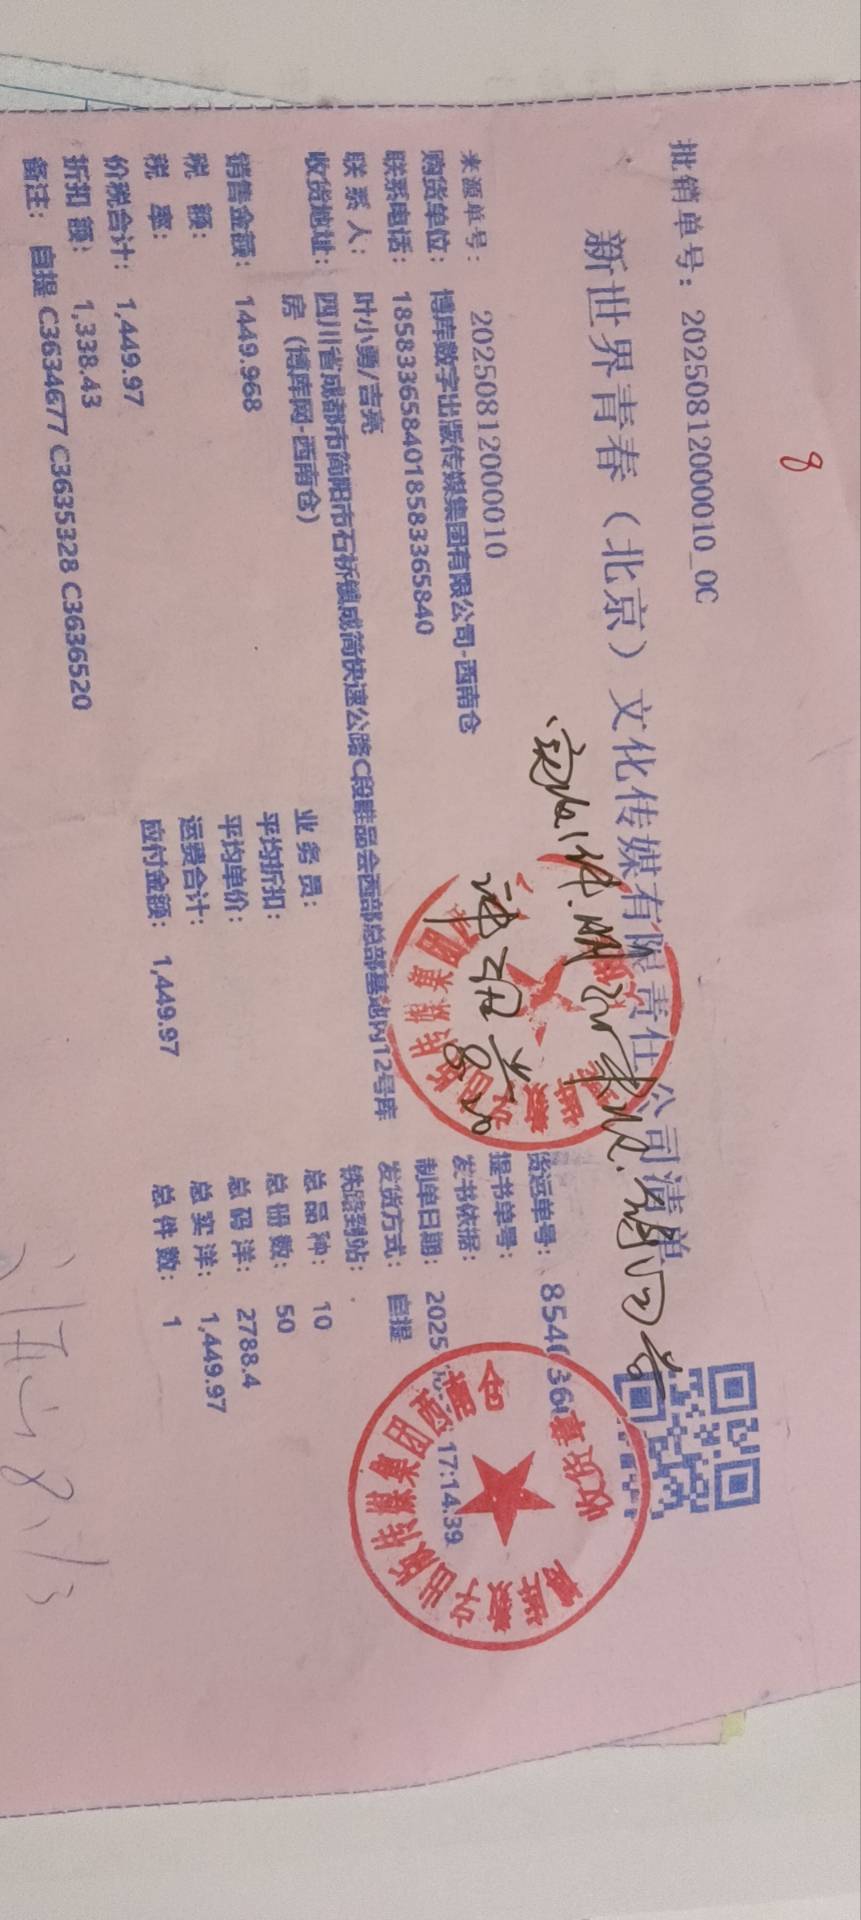 8
批销单号：20250812000010_0C
新世界青春（北京）文化传媒有限责任公司清单
来源单号： 20250812000010
货运单号： 854
购货单位： 博库数字出版传媒集团有限公司-西南仓
提书单号：
联系电话： 1858336584018583365840
发书依据：
联 系 人： 叶小勇/吉亮
制单日期： 2025 17:14:39
收货地址： 四川省成都市简阳市石桥镇成简快速公路C段唯品会西部总部基地内12号库
房（博库网-西南仓）
发货方式： 自提
铁路到站： .
销售金额： 1449.968
业 务 员：
总 品 种： 10
税 额：
平均折扣：
总 册 数： 50
税 率：
平均单价：
总 码 洋： 2788.4
价税合计： 1,449.97
运费合计：
总 实 洋： 1,449.97
折扣 额： 1,338.43
应付金额： 1,449.97
总 件 数： 1
备注： 自提 C3634677 C3635328 C3636520
博库数字出版传媒集团西南仓
收货章